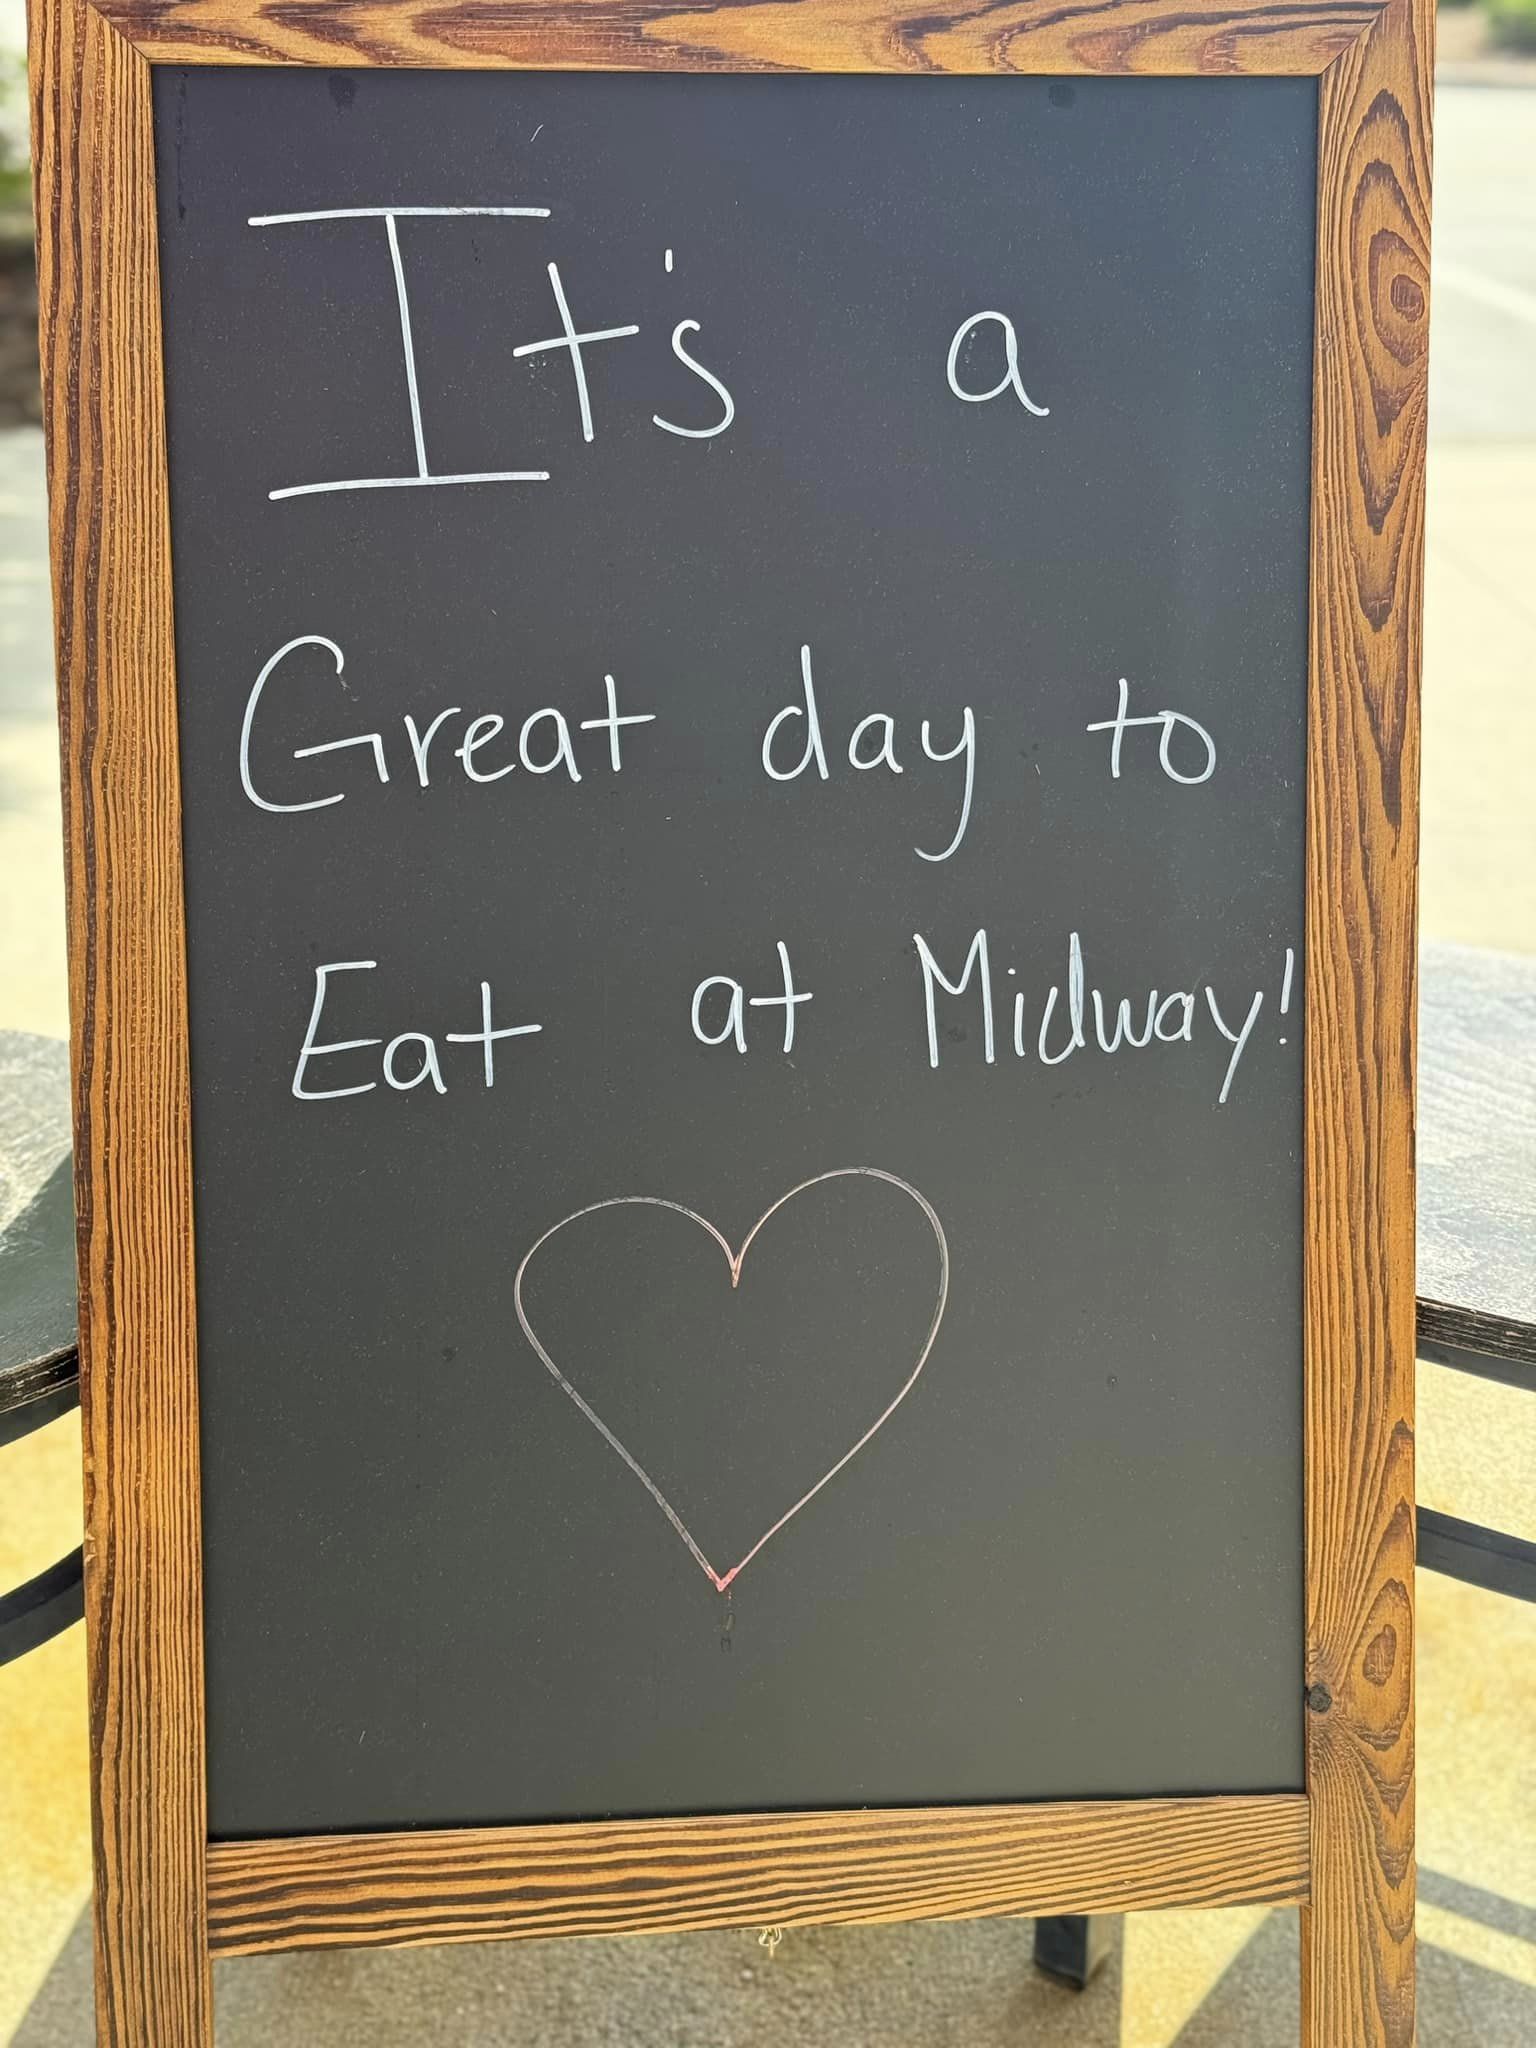 It's a
Great day to
Eat at Midway!